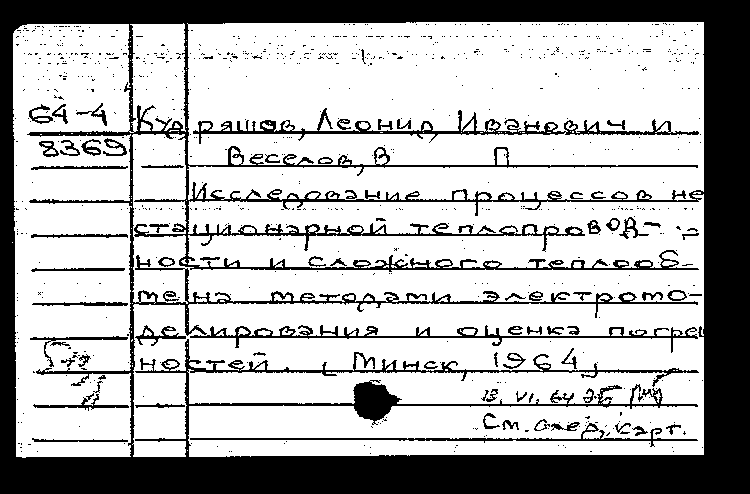 64-4
8369
Кудряшов, Леонид Иванович и
Веселов, В П
Исследование процессов не
стационарной теплопровод-
ности и сложного теплооб-
мена методами электромо-
делирования и оценка погреш
ностей. [Минск, 1964]
13. VI. 64
См. след. карт.